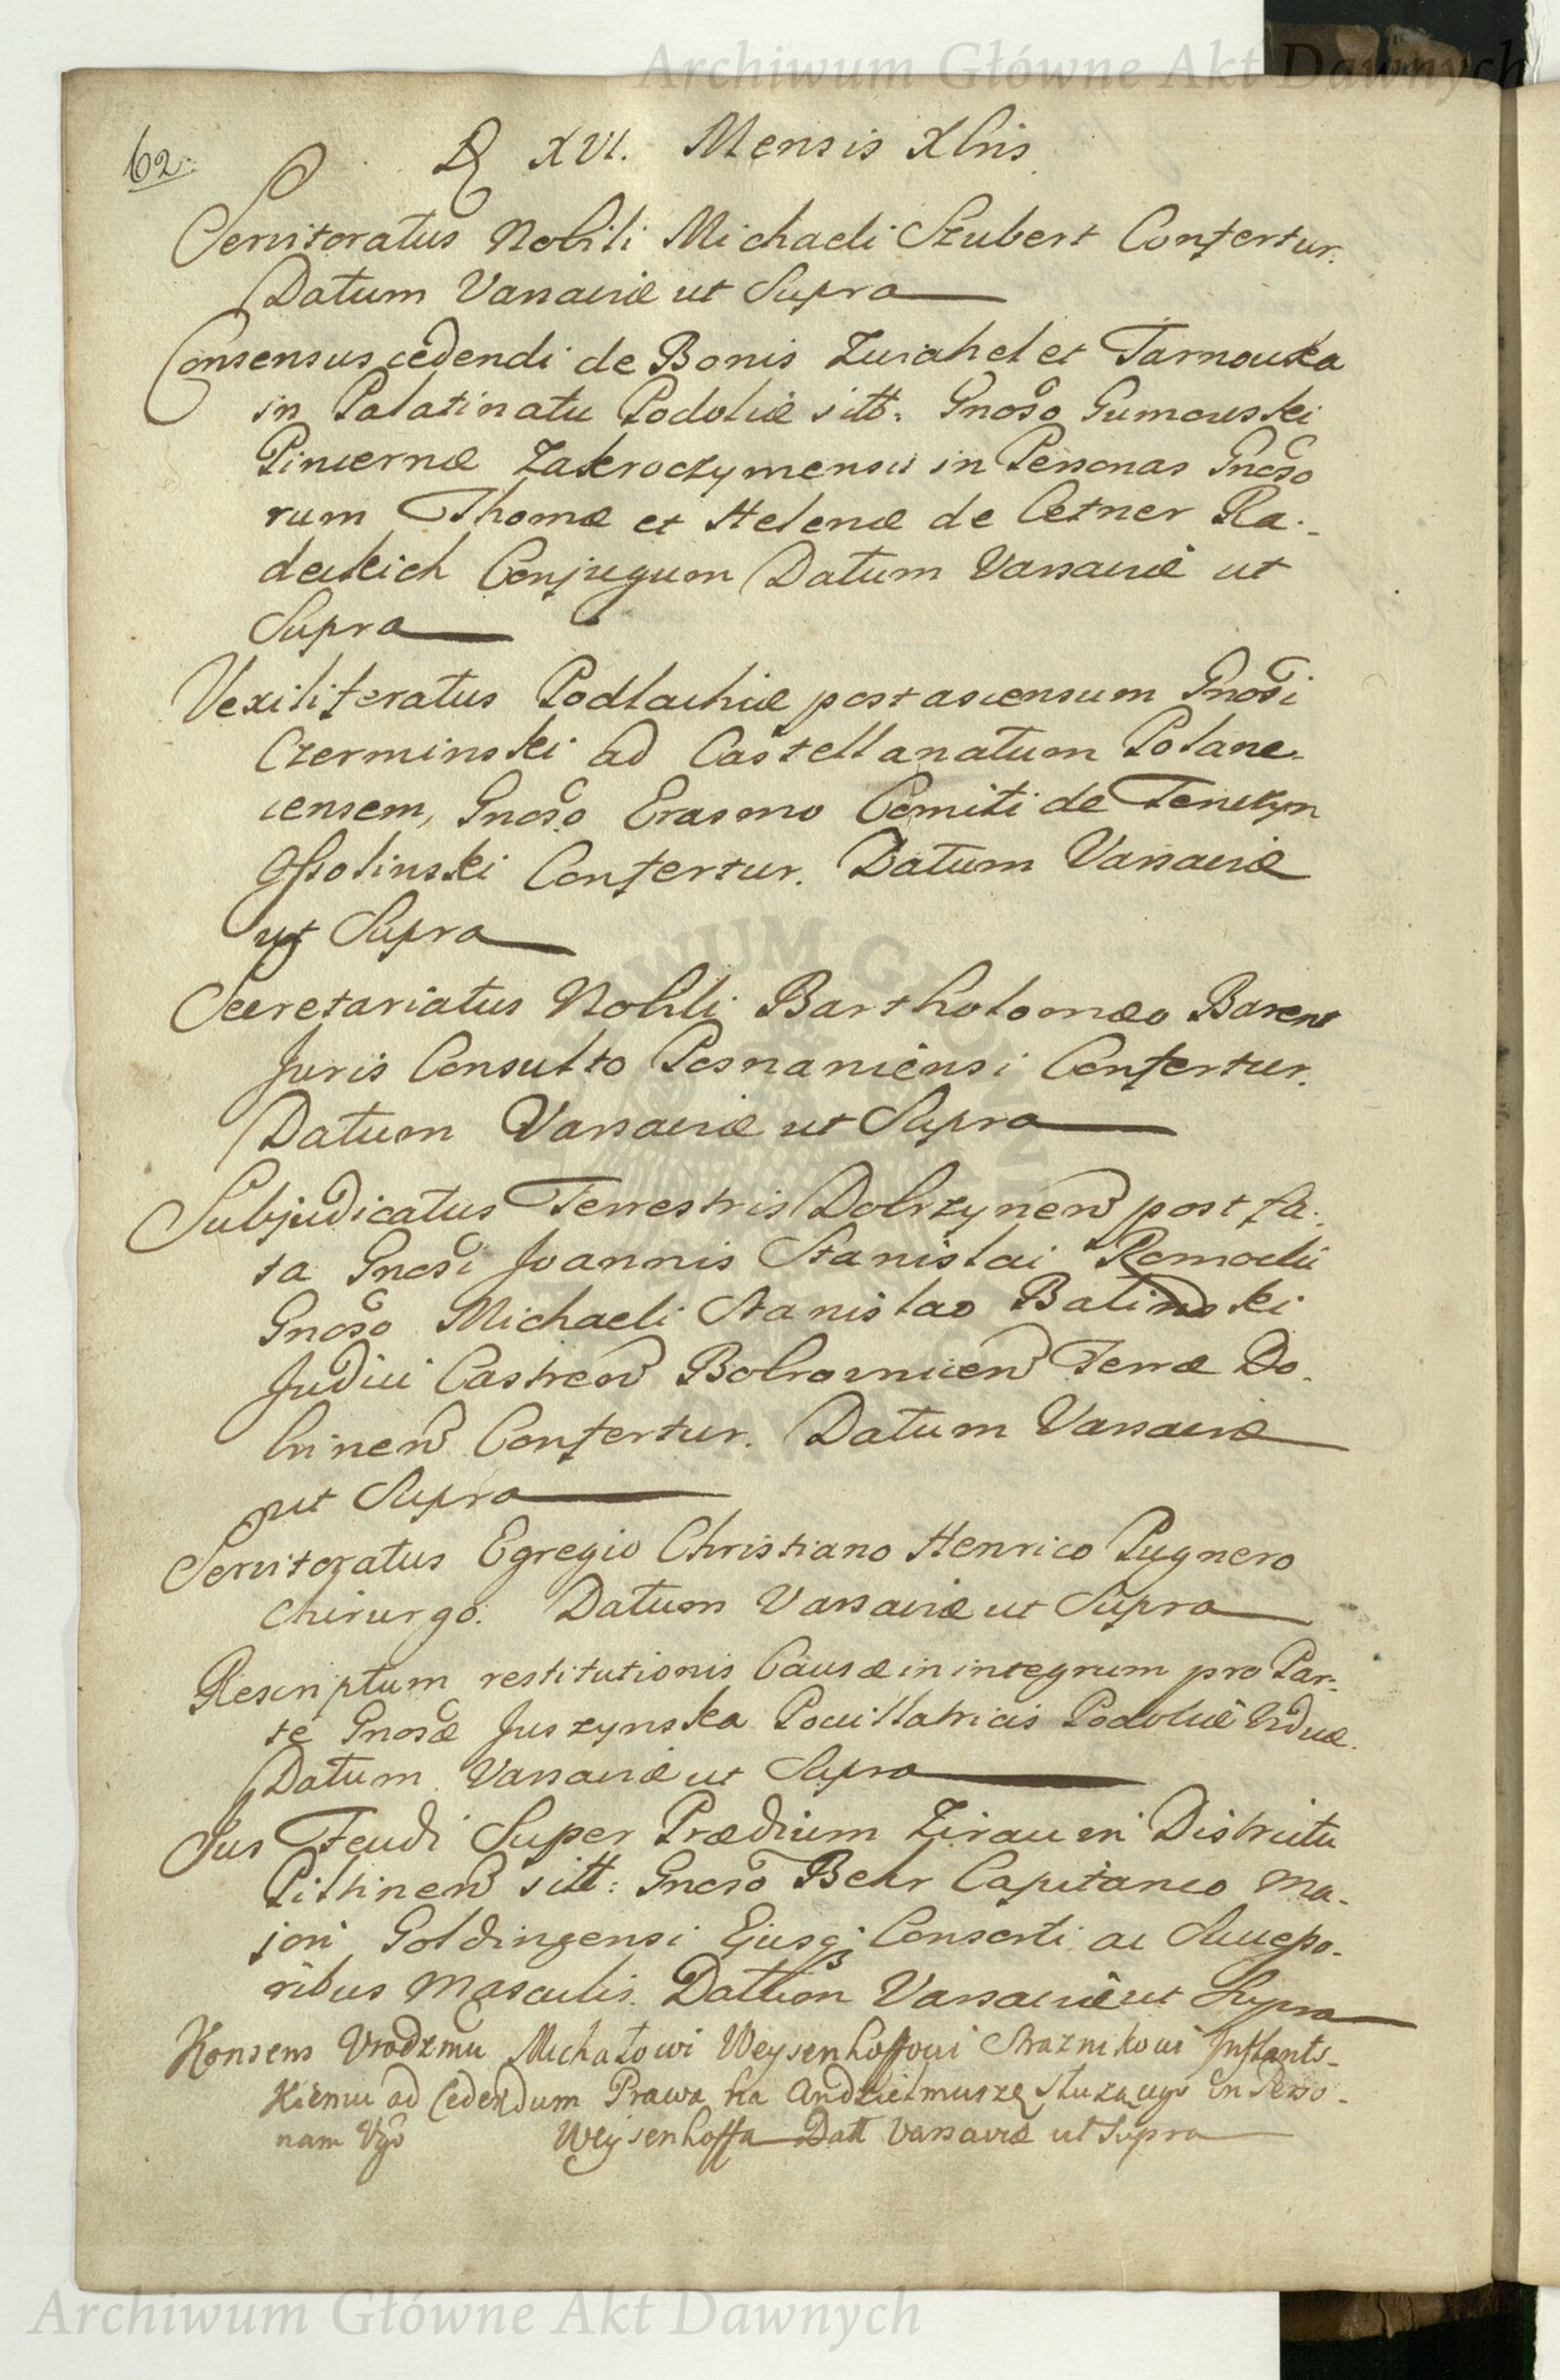 Archiwum Główne Akt Dawnych
62.
D XVI. Mensis Xbris
Servitoratus Nobili Michaeli Szubert Confertur.
Datum Varsaviæ ut Supra
Consensus cedendi de Bonis Zwiahel et Tarnowka
in Palatinatu Podoliæ sitt: Gnoso Gumowski
Pincernæ Zakroczymensii in Personas Gnoso
rum Thomæ et Helenæ de Cetner Ra:
deckich Conjugum Datum Varsaviæ ut
Supra
Vexiliferatus Podlachiæ post ascensum Gnosi
Czerminski ad Castellanatum Polane-
censem, Gnoso Erasmo Comiti de Tenczyn
Ossolinski Confertur. Datum Varsaviæ
ut Supra
Secretariatus Nobili Bartholomæo Barent
Juris Consulto Posnaniensi Confertur.
Datum Varsaviæ ut Supra
Subjudicatus Terrestris Dobrzynen post fa:
ta Gnosi Joannis Stanislai
Gnoso Michaeli Stanislao Balinski
Judici Castren Bobrownicen Terræ Do-
brinen Confertur. Datum Varsaviæ
ut Supra
Servitoratus Egregio Christiano Henrico Pugnero
Chirurgo. Datum Varsaviæ ut Supra
Rescriptum restitutionis Causæ in integrum pro Par:
te Gnosæ Juszynska Pocillatricis Podoliæ Viduæ.
Datum Varsaviæ ut Supra
Jus Feudi Super Prædium Zirau in Districtu
Piltinen sitt: Gnoso Behr Capitaneo Ma-
jori Goldingensi Ejusq Consorti ac Successo-
ribus Masculis. Dattum Varsaviæ ut Supra
Konsens Urodzmu Michałowi Weysenhoffowi Straznikowi Inflants-
kiemu ad Cedendum Prawa na Andzielmuszę słuzącego in Perso-
nam Ugo Weysenhoffa Datt Varsaviæ ut Supra
Archiwum Główne Akt Dawnych